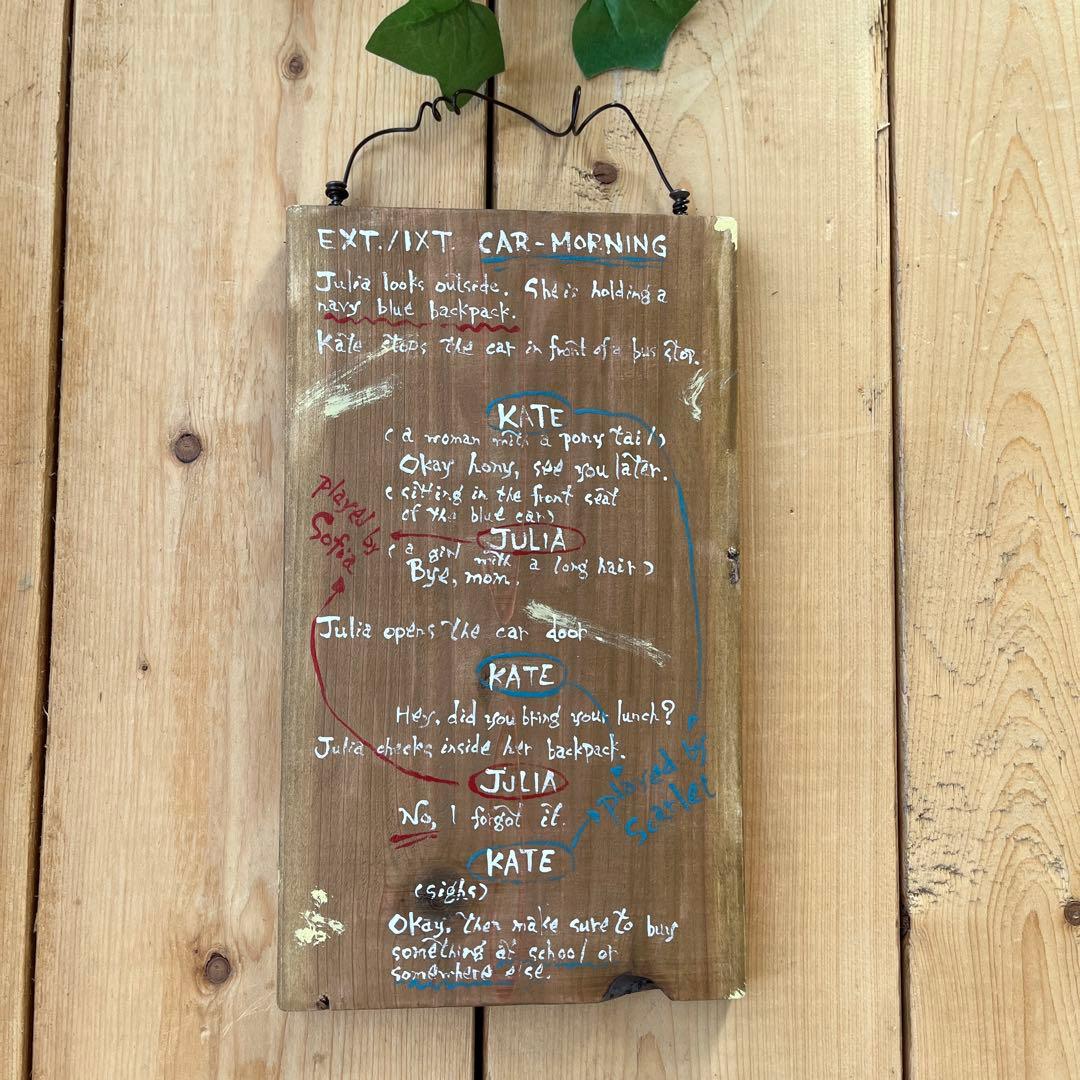 EXT./IXT. CAR-MORNING
Julia looks outside. She is holding a
navy blue backpack.
Kate stops the car in front of a bus stop.
KATE
(a woman with a pony tail)
Okay hony, see you later.
(sitting in the front seat
of the blue car)
JULIA
(a girl with a long hair)
Bye, mom.
played by
Sofia
Julia opens the car door.
KATE
Hey, did you bring your lunch?
Julia checks inside her backpack.
JULIA
No, I forgot it.
played by
Scarlet
KATE
(sighs)
Okay, then make sure to buy
something at school or
somewhere else.